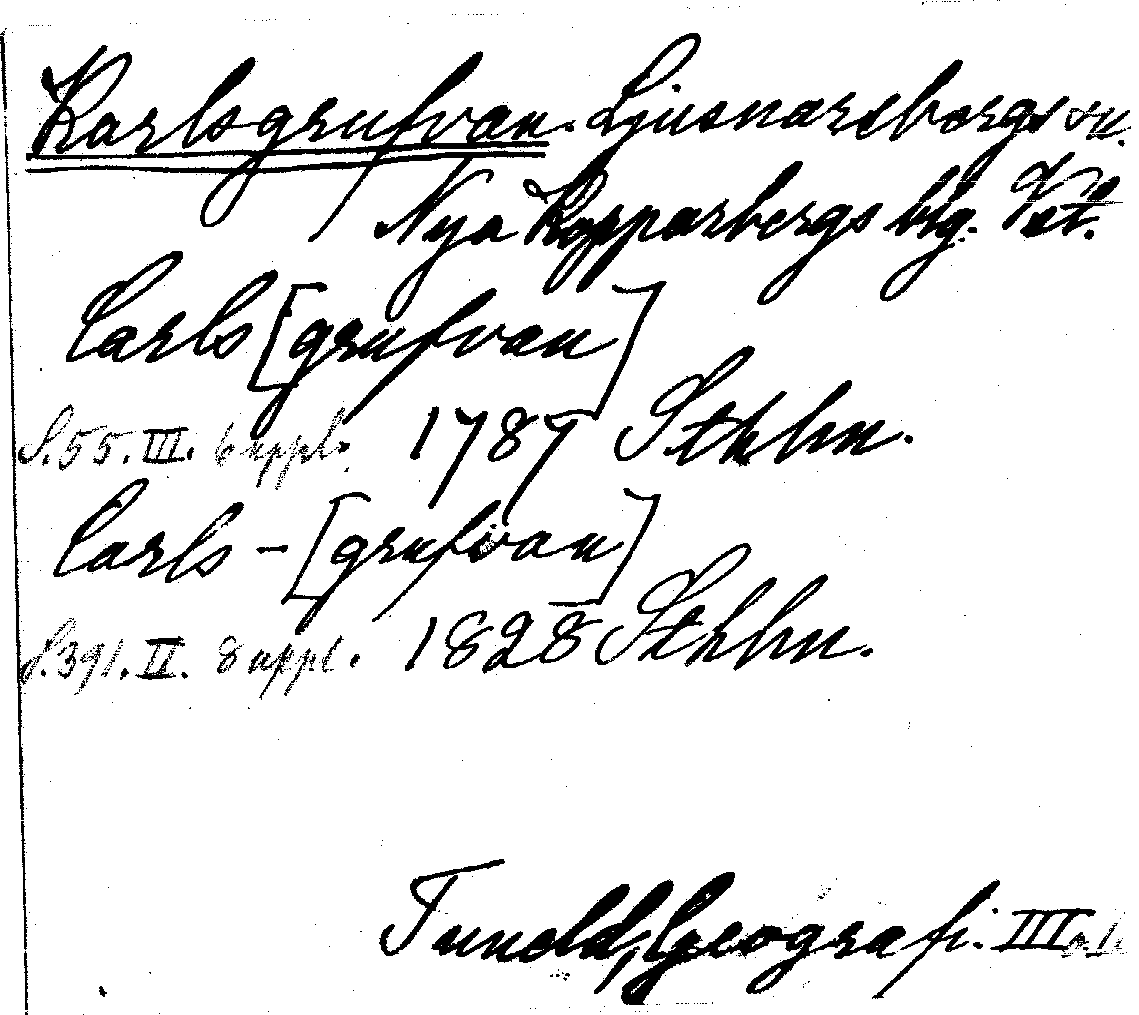 Karlsgrufvan. Ljusnarsbergs sn.
Nya Kopparbergs blg. Vstl.
Carls [grufvan]
S.55.III. 6 uppl. 1787 Sthlm.
Carls - [grufvan]
S.391.II. 8 uppl. 1828 Sthlm.
Tuneld, Geografi. III